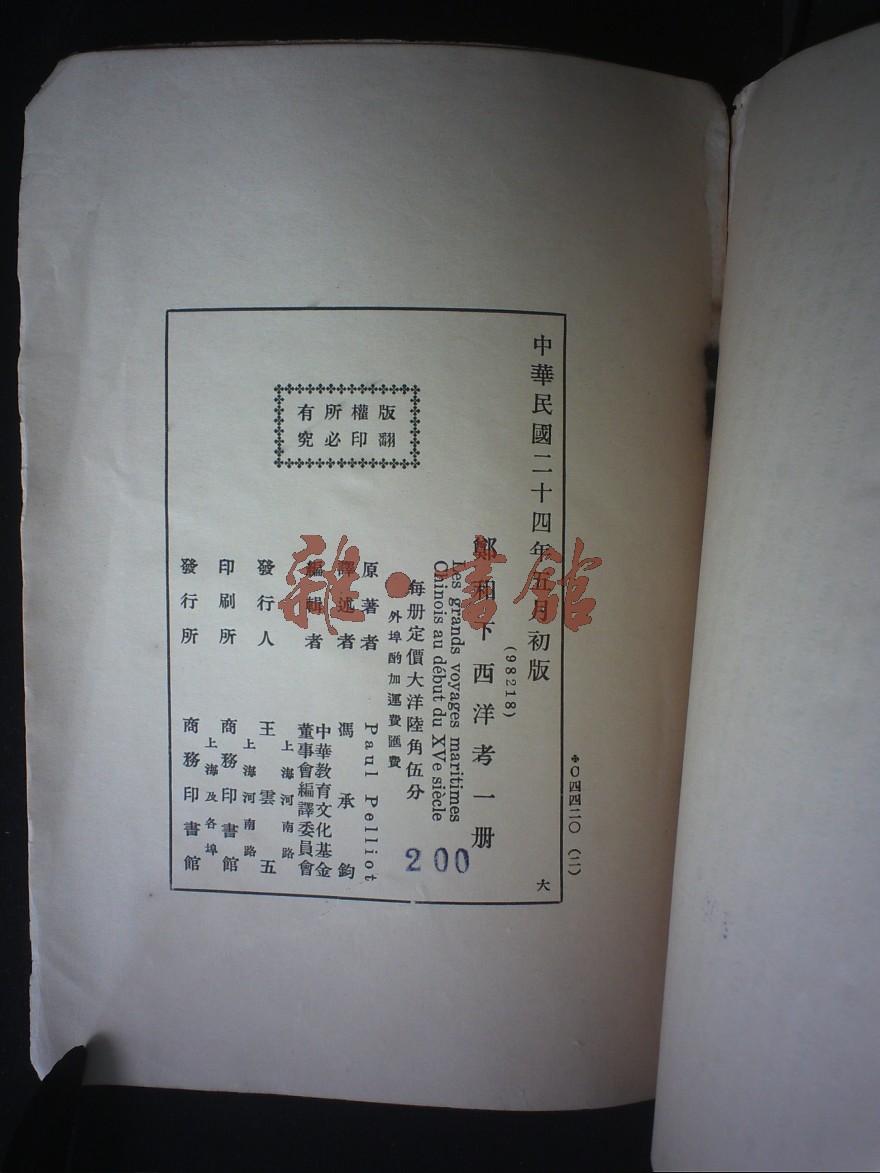 中華民國二十四年五月初版
(98218)
鄭和下西洋考一册
Les grands voyages maritimes
Chinois au début du XVe siècle
每册定價大洋陸角伍分
外埠酌加運費匯費
200
原著者 Paul Pelliot
譯述者 馮承鈞
編輯者 中華教育文化基金
董事會編譯委員會
發行人 王雲五
上海河南路
印刷所 商務印書館
上海河南路
發行所 商務印書館
上海及各埠
版權所有
翻印必究
大
○四四二○(二)
雜·書館